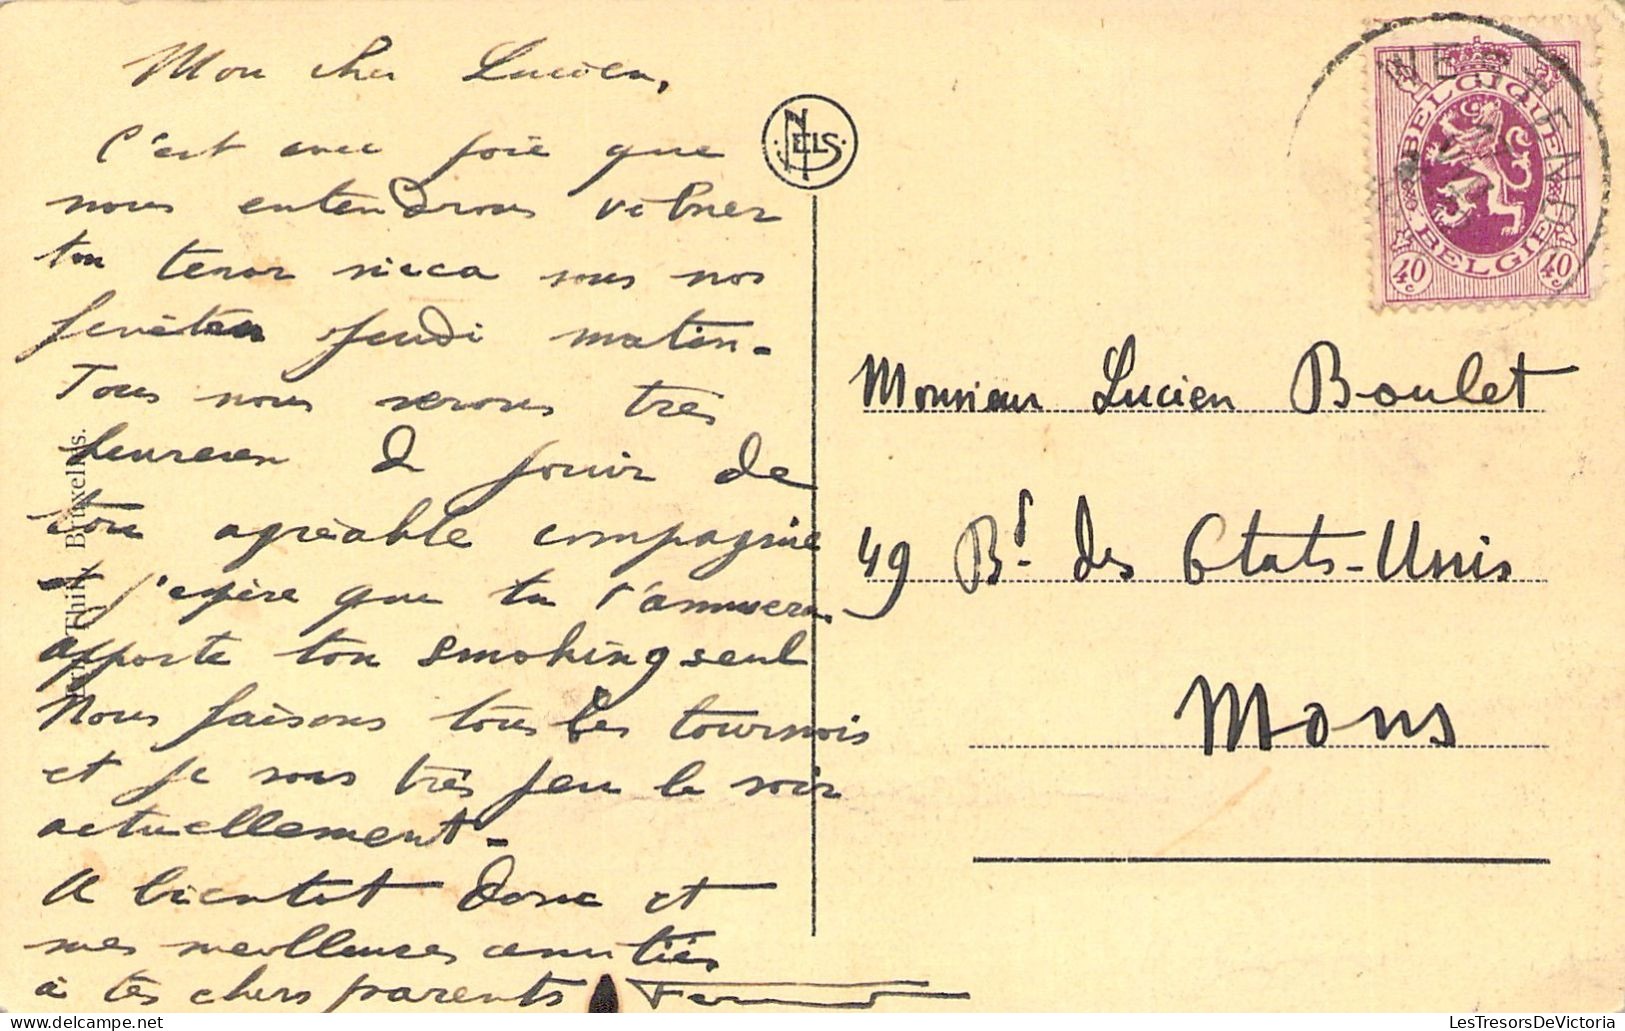 Mon cher Lucien,
C'est avec joie que
nous entendrons vibrer
ton tenor sicca sous nos
fenêtres Jeudi matin -
Tous nous serons très
heureux de jouir de
ton agréable compagnie
J'espère que tu t'amuseras
apporte ton smoking seul
Nous faisons tous les tournois
et je sors très peu le soir
actuellement -
A bientôt donc et
mes meilleures amitiés
à tes chers parents
NELS
Thill, Bruxelles.
BELGIQUE
BELGIE
40c 40c
Monsieur Lucien Boulet
49 Bd. des Etats-Unis
Mons
LesTresorsDeVictoria.com